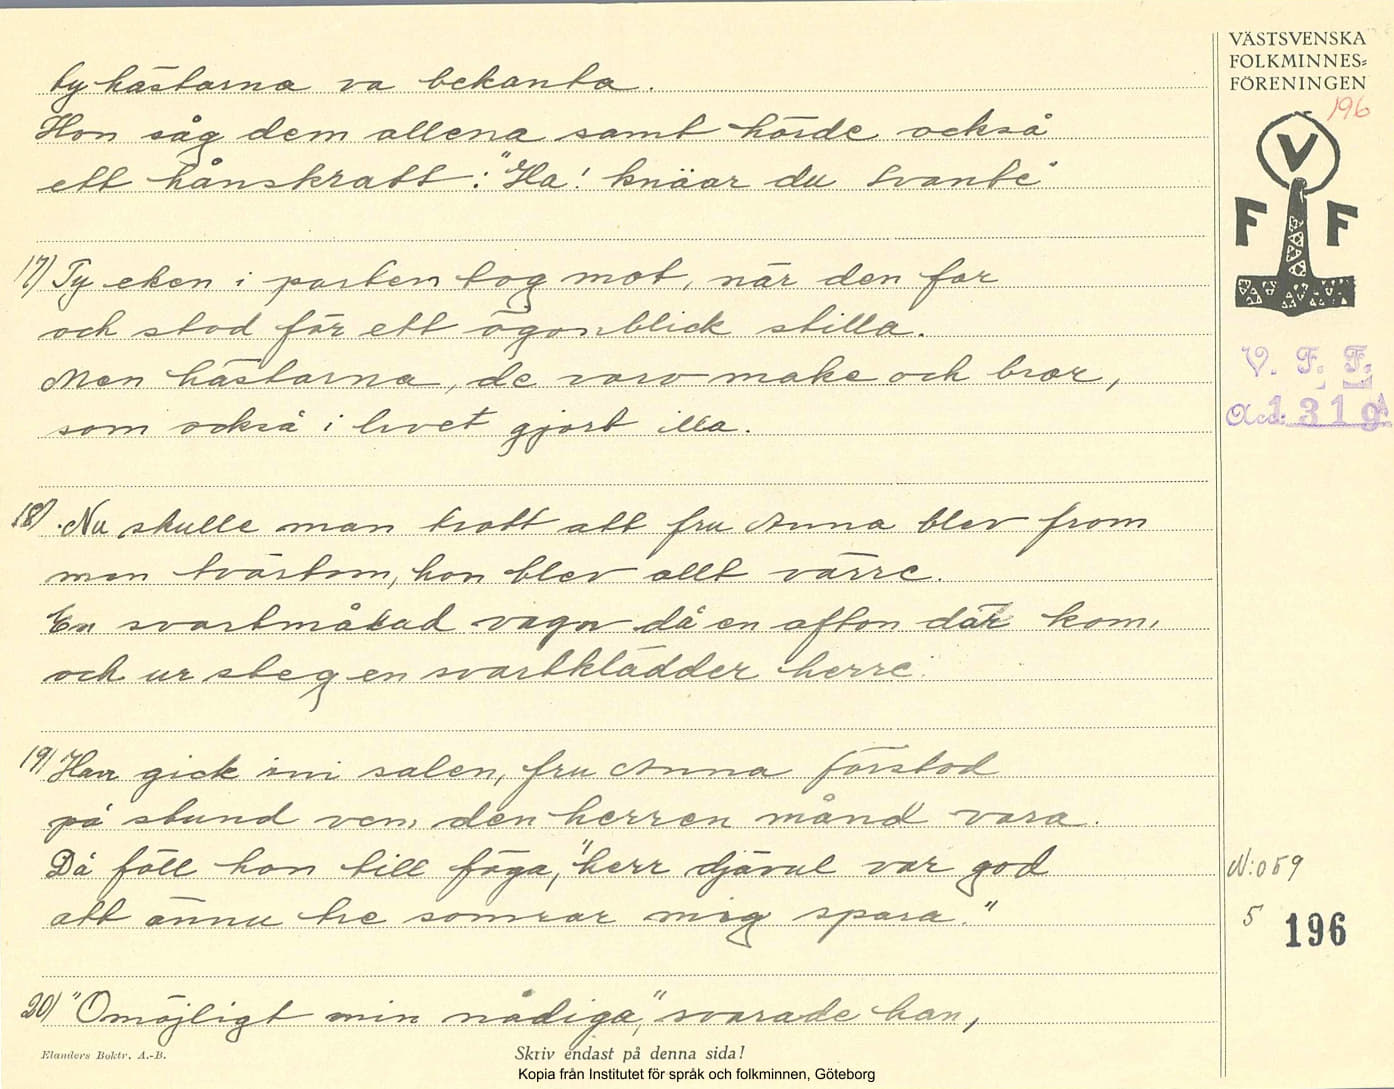 ty hästarna va bekanta.
Hon såg dem allena samt hörde också
ett hånskratt: "Ha! knäar du Svante"
17) Ty eken i parken tog mot, när den far
och stod för ett ögonblick stilla.
Men hästarna, de voro make och bror,
som också i livet gjort illa.
18) Nu skulle man trott att fru Anna blev from
men tvärtom, hon blev allt värre.
En svartmålad vagn då en afton där kom,
och ur steg en svartklädder herre.
19) Han gick in i salen, fru Anna förstod
på stund vem den herren månd vara.
Då föll hon till föga, "herr djävul var god
att ännu tre somrar mig spara."
20) "Omöjligt min nådiga", svarade han,
Elanders Boktr. A.-B.
Skriv endast på denna sida!
Kopia från Institutet för språk och folkminnen, Göteborg
VÄSTSVENSKA
FOLKMINNES-
FÖRENINGEN
196
V
F F
V. F. F.
Acc: 1319
N:o 59
5 196